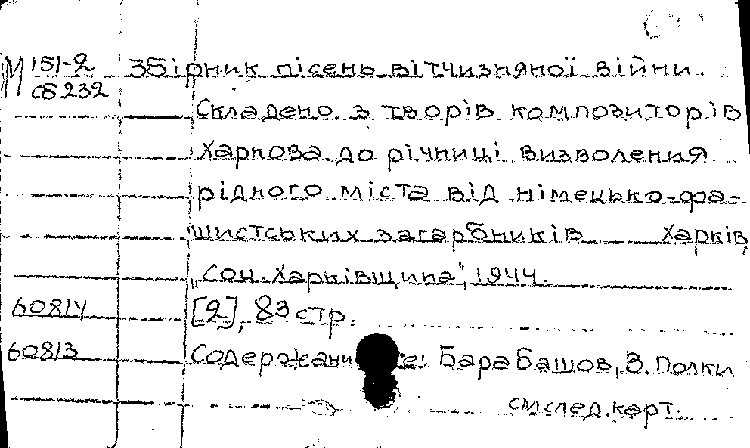 М 151-2 Збірник пісень вітчизняної війни.
сб 232
Складено з творів композиторів
Харкова до річниці визволення
рідного міста від німецько-фа-
шистських загарбників Харків,
„Соц. Харківщина”, 1944.
60814 [2], 83 стр.
60813 Содержание: Барабашов, З. Полки
см след. карт.